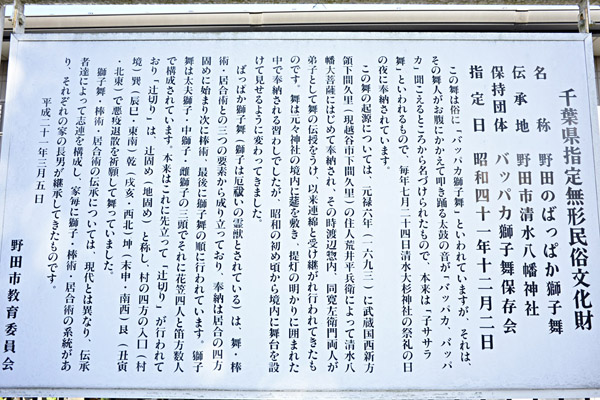 千葉県指定無形民俗文化財
名　　称　野田のばっぱか獅子舞
伝 承 地　野田市清水八幡神社
保持団体　バッパカ獅子舞保存会
指 定 日　昭和四十一年十二月二日
この舞は俗に「バッパカ獅子舞」といわれていますが、それは、
その舞人がお腹にかかえて叩き踊る太鼓の音が「バッパカ、バッパ
カ」聞こえるところから名づけられたもので、本来は「子ササラ
舞」といわれるもので、毎年七月二十四日清水大杉神社の祭礼の日
の夜に奉納されています。
この舞の起源については、元禄六年(一六九三)に武蔵国西新方
領下間久里(現越谷市下間久里)の住人荒井平兵衛によって清水八
幡大菩薩にはじめて奉納され、その時渡辺惣内、同寛左衛門両人が
弟子として舞の伝授をうけ、以来連綿と受け継がれ行われてきたも
のです。舞は元々神社の境内に莚を敷き、提灯の明かりに囲まれた
中で奉納される習わしでしたが、昭和の初め頃から境内に舞台を設
けて見せるように変わってきました。
ばっぱか獅子舞(獅子は厄祓いの霊獣とされている)は、舞・棒
術・居合術との三つの要素から成り立っており、奉納は居合の四方
固めに始まり次に棒術、最後に獅子舞の順に行われています。獅子
舞は太夫獅子・中獅子・雌獅子の三頭でそれに花笠四人と笛方数人
で構成されています。本来はこれに先立って「辻切り」が行われて
おり「辻切り」は、辻固め(地固め)と称し、村の四方の入口(村
境)巽(辰巳・東南)乾(戌亥・西北)坤(未申・南西)艮(丑寅
・北東)で悪疫退散を祈願して舞っていました。
獅子舞・棒術・居合術の伝承については、現代とは異なり、伝承
者達によって志連を構成し、家毎に獅子・棒術・居合術の系統があ
り、それぞれの家の長男が継承してきたものです。
平成二十一年三月五日
野田市教育委員会